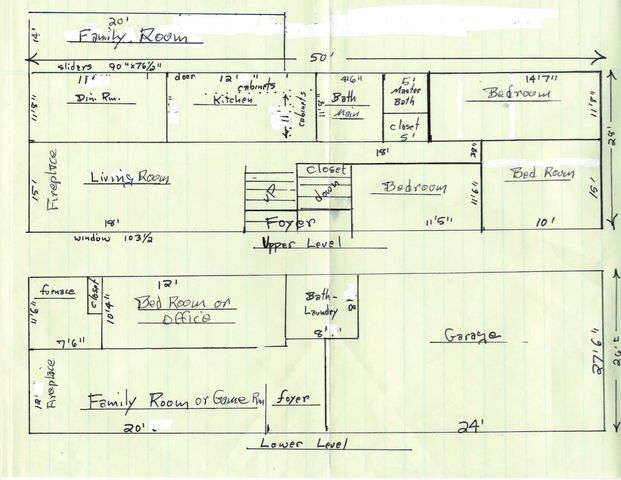 20'
14'
Family Room
50'
sliders 90"x76½"
11'
door
12'
cabinets
4'6"
5'
14'7"
11'8"
Din Rm.
Kitchen
11'
cabinets
8'11"
Bath
Main
Master
Bath
Bedroom
11'8"
28'
closet
5'
18'
Fireplace
15'
Living Room
UP
closet
down
Bedroom
Bed Room
15'
Foyer
18'
11'5"
10'
window 103½
Upper Level
furnace
closet
12'
11'6"
10'4"
Bed Room or
office
Bath-
Laundry
8'
8'
7'6"
Garage
27'6"
Fireplace
12'
Family Room or Game Rm
foyer
20'
24'
Lower Level